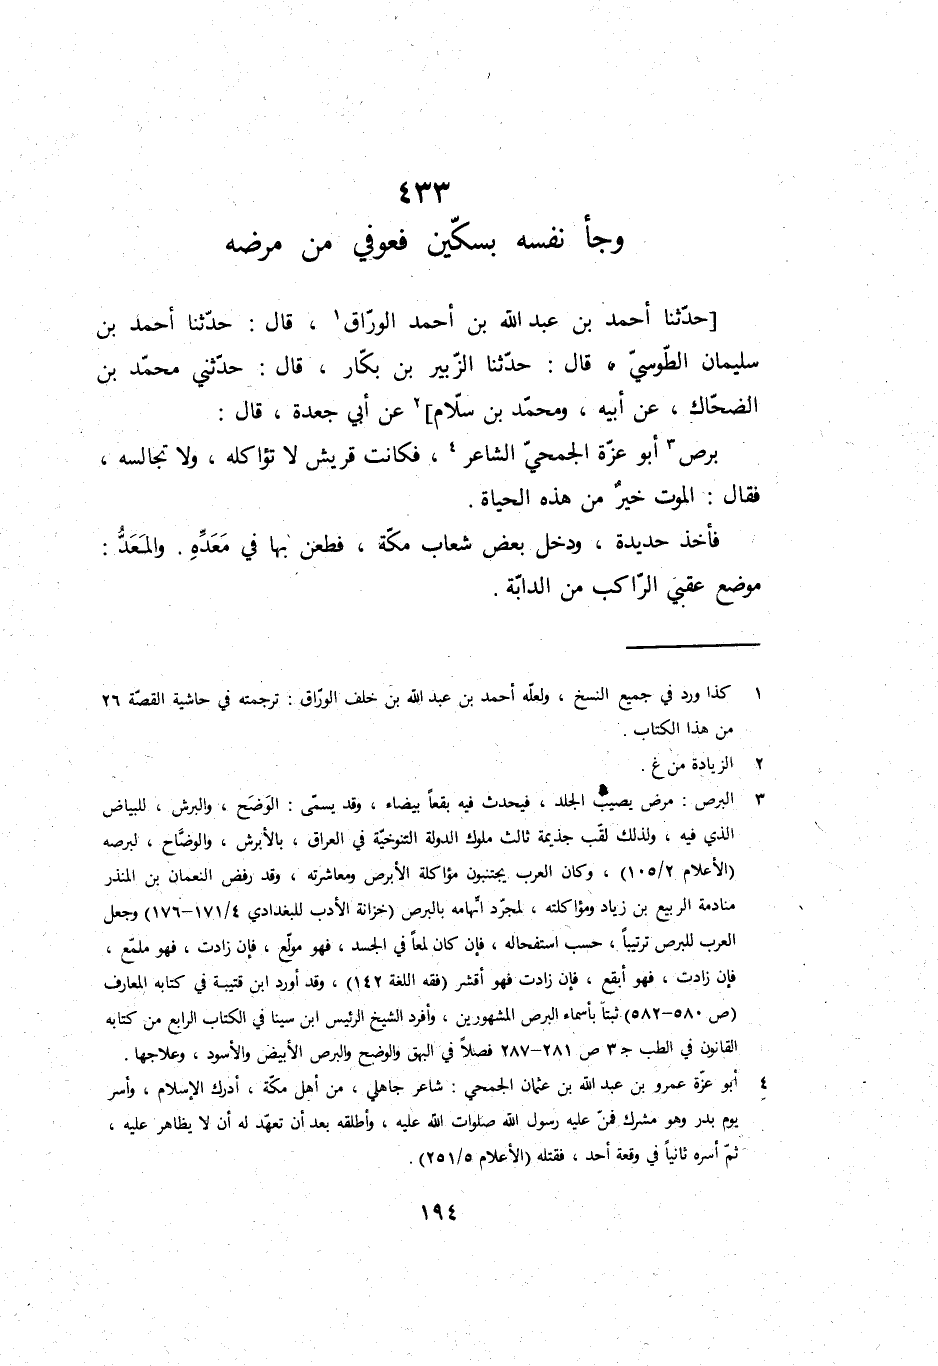 ٤٣٣
وجأ نفسه بسكّين فعوفي من مرضه
[حدّثنا أحمد بن عبد الله بن أحمد الورّاق١ ، قال : حدّثنا أحمد بن
سليمان الطّوسيّ ، قال : حدّثنا الزّبير بن بكّار ، قال : حدّثني محمّد بن
الضحّاك ، عن أبيه ، ومحمّد بن سلّام]٢ عن أبي جعدة ، قال :
برص٣ أبو عزّة الجمحيّ الشاعر٤ ، فكانت قريش لا تؤاكله ، ولا تجالسه ،
فقال : الموت خيرٌ من هذه الحياة .
فأخذ حديدة ، ودخل بعض شعاب مكّة ، فطعن بها في مَعَدِّهِ . والمَعَدُّ :
موضع عقبي الرّاكب من الدابّة .
١ كذا ورد في جميع النسخ ، ولعلّه أحمد بن عبد الله بن خلف الورّاق : ترجمته في حاشية القصّة ٢٦
من هذا الكتاب .
٢ الزيادة من غ .
٣ البرص : مرض يصيب الجلد ، فيحدث فيه بقعاً بيضاء ، وقد يسمّى : الوَضَح ، والبرش ، للبياض
الذي فيه ، ولذلك لقّب جذيمة ثالث ملوك الدولة التنوخيّة في العراق ، بالأبرش ، والوضَّاح ، لبرصه
(الأعلام ١٠٥/٢) ، وكان العرب يجتنبون مؤاكلة الأبرص ومعاشرته ، وقد رفض النعمان بن المنذر
منادمة الربيع بن زياد ومؤاكلته ، لمجرّد اتّهامه بالبرص (خزانة الأدب للبغدادي ١٧١/٤–١٧٦) وجعل
العرب للبرص ترتيباً ، حسب استفحاله ، فإن كان لمعاً في الجسد ، فهو مولّع ، فإن زادت ، فهو ملمّع ،
فإن زادت ، فهو أبقع ، فإن زادت فهو أقشر (فقه اللغة ١٤٢) ، وقد أورد ابن قتيبة في كتابه المعارف
(ص ٥٨٠–٥٨٢) ثبتاً بأسماء البرص المشهورين ، وأفرد الشيخ الرئيس ابن سينا في الكتاب الرابع من كتابه
القانون في الطب ج ٣ ص ٢٨١–٢٨٧ فصلاً في البهق والوضح والبرص الأبيض والأسود ، وعلاجها .
٤ أبو عزّة عمرو بن عبد الله بن عثمان الجمحي : شاعر جاهلي ، من أهل مكّة ، أدرك الإسلام ، وأسر
يوم بدر وهو مشرك فمنّ عليه رسول الله صلوات الله عليه ، وأطلقه بعد أن تعهّد له أن لا يظاهر عليه ،
ثمّ أسره ثانياً في وقعة أحد ، فقتله (الأعلام ٢٥١/٥) .
١٩٤